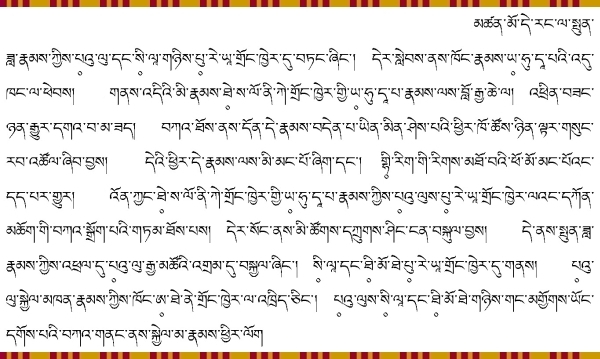 མཚན་མོ་དེ་རང་ལ་སྤུན་
ཟླ་རྣམས་ཀྱིས་པའུ་ལུ་དང་སི་ལཱ་གཉིས་པུ་རེ་ཡཱ་གྲོང་ཁྱེར་དུ་བཏང་ཞིང་། དེར་སླེབས་ནས་ཁོང་རྣམས་ཡ་ཧུ་དཱ་པའི་འདུ་
ཁང་ལ་ཕེབས། གནས་འདིའི་མི་རྣམས་ཐེ་ས་ལོ་ནི་ཀེ་གྲོང་ཁྱེར་གྱི་ཡ་ཧུ་དཱ་པ་རྣམས་ལས་བློ་རྒྱ་ཆེ་ལ། འཕྲིན་བཟང་
ཉན་རྒྱུར་དགའ་བ་མ་ཟད། བཀའ་ཐོས་ནས་དོན་དེ་རྣམས་བདེན་པ་ཡིན་མིན་ཤེས་པའི་ཕྱིར་ཁོ་ཚོས་ཉིན་ལྟར་གསུང་
རབ་འཚོལ་ཞིབ་བྱས། དེའི་ཕྱིར་དེ་རྣམས་ལས་མི་མང་པོ་ཞིག་དང་། གྷི་རིག་གི་རིགས་མཐོ་བའི་ཕོ་མོ་མང་པོའང་
དད་པར་གྱུར། འོན་ཀྱང་ཐེ་ས་ལོ་ནི་ཀེ་གྲོང་ཁྱེར་གྱི་ཡ་ཧུ་དཱ་པ་རྣམས་ཀྱིས་པའུ་ལུས་པུ་རེ་ཡཱ་གྲོང་ཁྱེར་ལའང་དཀོན་
མཆོག་གི་བཀའ་སྒྲོག་པའི་གཏམ་ཐོས་པས། དེར་སོང་ནས་མི་ཚོགས་དཀྲུགས་ཤིང་ངན་བསྐུལ་བྱས། དེ་ནས་སྤུན་ཟླ་
རྣམས་ཀྱིས་འཕྲལ་དུ་པའུ་ལུ་རྒྱ་མཚོའི་འགྲམ་དུ་བསྐྱལ་ཞིང་། སི་ལཱ་དང་ཐི་མོ་ཐེ་པུ་རེ་ཡཱ་གྲོང་ཁྱེར་དུ་གནས། པའུ་
ལུ་སྐྱེལ་མཁན་རྣམས་ཀྱིས་ཁོང་ཨ་ཐེ་ནེ་གྲོང་ཁྱེར་ལ་འཁྲིད་ཅིང་། པའུ་ལུས་སི་ལཱ་དང་ཐི་མོ་ཐེ་གཉིས་གང་མགྱོགས་ཡོང་
དགོས་པའི་བཀའ་གནང་ནས་སྐྱེལ་མ་རྣམས་ཕྱིར་ལོག